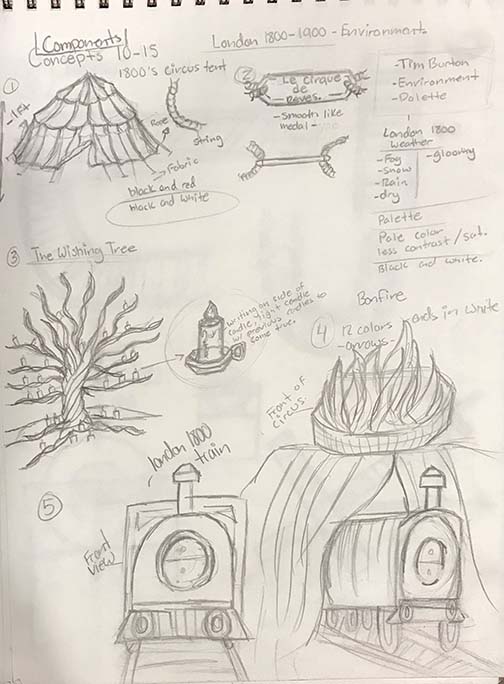 Components
Concepts 10-15
London 1800-1900 - Environment
①
1800's circus tent
Rope
String
Fabric
black and red
black and white
②
Le cirque
de
Reves.
-Smooth like
medal -
-Tim Burton
-Environment
-Palette
London 1800
weather
-Fog
-snow
-Rain
-dry
-gloomy
Palette
Pale color
less contrast/sat.
Black and white.
③ The Wishing Tree
writing on side of
candle, light candle
w/ previous candles to
come true.
Bonfire
④ 12 colors
ends in white
-arrows
Front of
circus
⑤
london 1800
train
Front
view